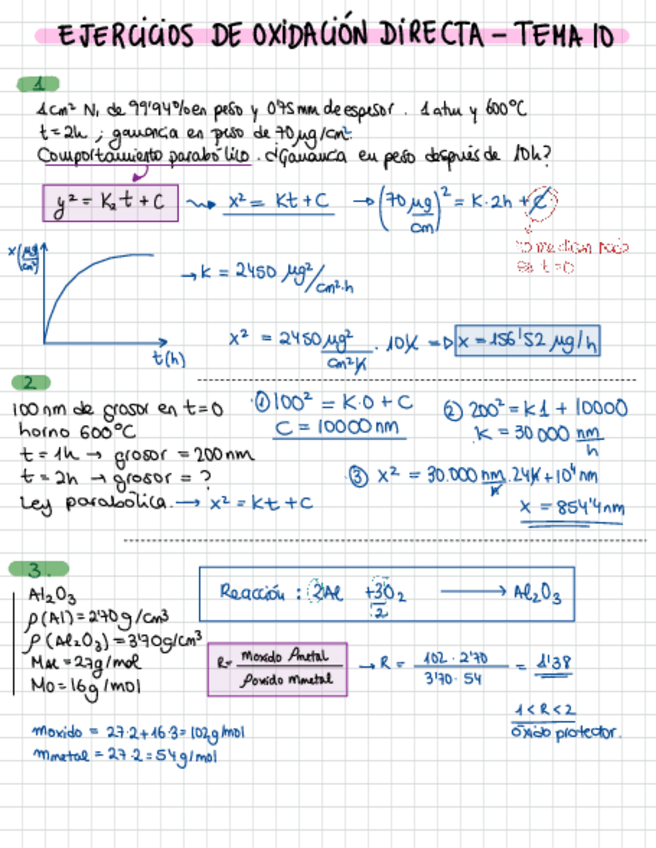 EJERCICIOS DE OXIDACIÓN DIRECTA - TEMA 10
1
1cm² Ni de 99'94% en peso y 0'75mm de espesor. 1 atm y 600°C
t = 2h ; ganancia en peso de 70 μg/cm².
Comportamiento parabólico. ¿Ganancia en peso después de 10h?
y² = K₂t + C
x² = Kt + C → (70 μg/cm)² = K·2h + C
en t=0
x (μg/cm²)
t(h)
→ K = 2450 μg²/cm²·h
x² = 2450 μg²/cm²h · 10h ⇒ x = 156'52 μg/h
2
100 nm de grosor en t=0
horno 600°C
t = 1h → grosor = 200nm
t = 2h → grosor = ?
Ley parabólica. → x² = Kt + C
① 100² = K·0 + C
C = 10000 nm
② 200² = K1 + 10000
K = 30000 nm/h
③ x² = 30.000 nm/h · 24h + 10⁴ nm
x = 854'4nm
3.
Al₂O₃
ρ(Al) = 2'70 g/cm³
ρ(Al₂O₃) = 3'90g/cm³
MAl = 27g/mol
MO = 16g/mol
Reacción : 2Al + 3/2 O₂ → Al₂O₃
R = moxido ρmetal / ρoxido mmetal
→ R = 102 · 2'70 / 3'70 · 54 = 1'38
1 < R < 2
óxido protector.
moxido = 27·2 + 16·3 = 102g/mol
mmetal = 27·2 = 54 g/mol